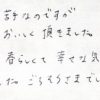 苦手なのですが
おいしく頂きました
春らしくて 幸せな気
した ごちそうさまでし